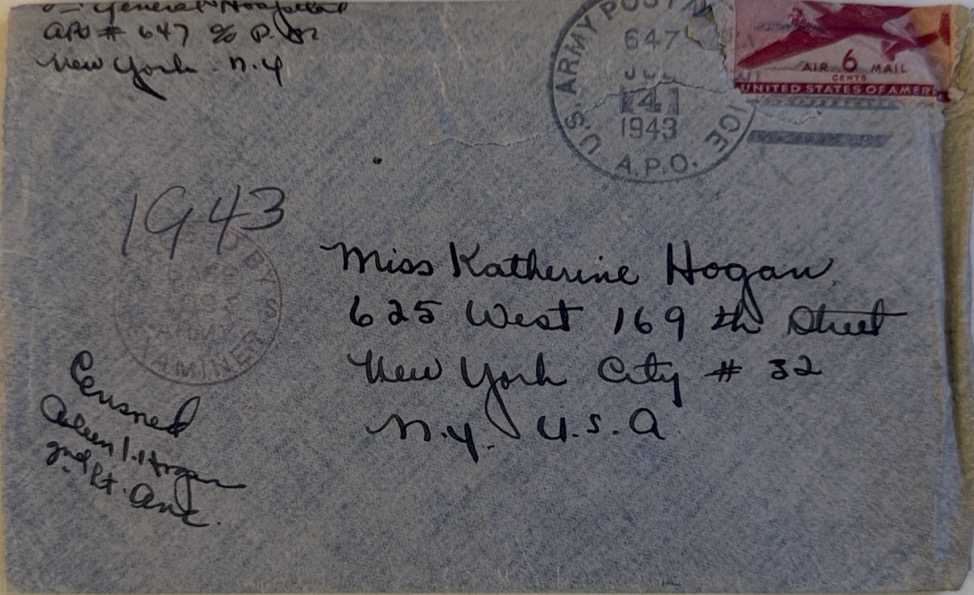 General Hospital
APO # 647 % P.M.
New York. N.Y
U.S. ARMY POSTAL
647
14
1943
A.P.O.
AIR 6 MAIL
CENTS
UNITED STATES OF AMER
1943
BY
EXAMINER
Miss Katherine Hogan
625 West 169 th Street
New York City # 32
N.Y. U.S.A
Censored
Hogan
2nd Lt. ANC.